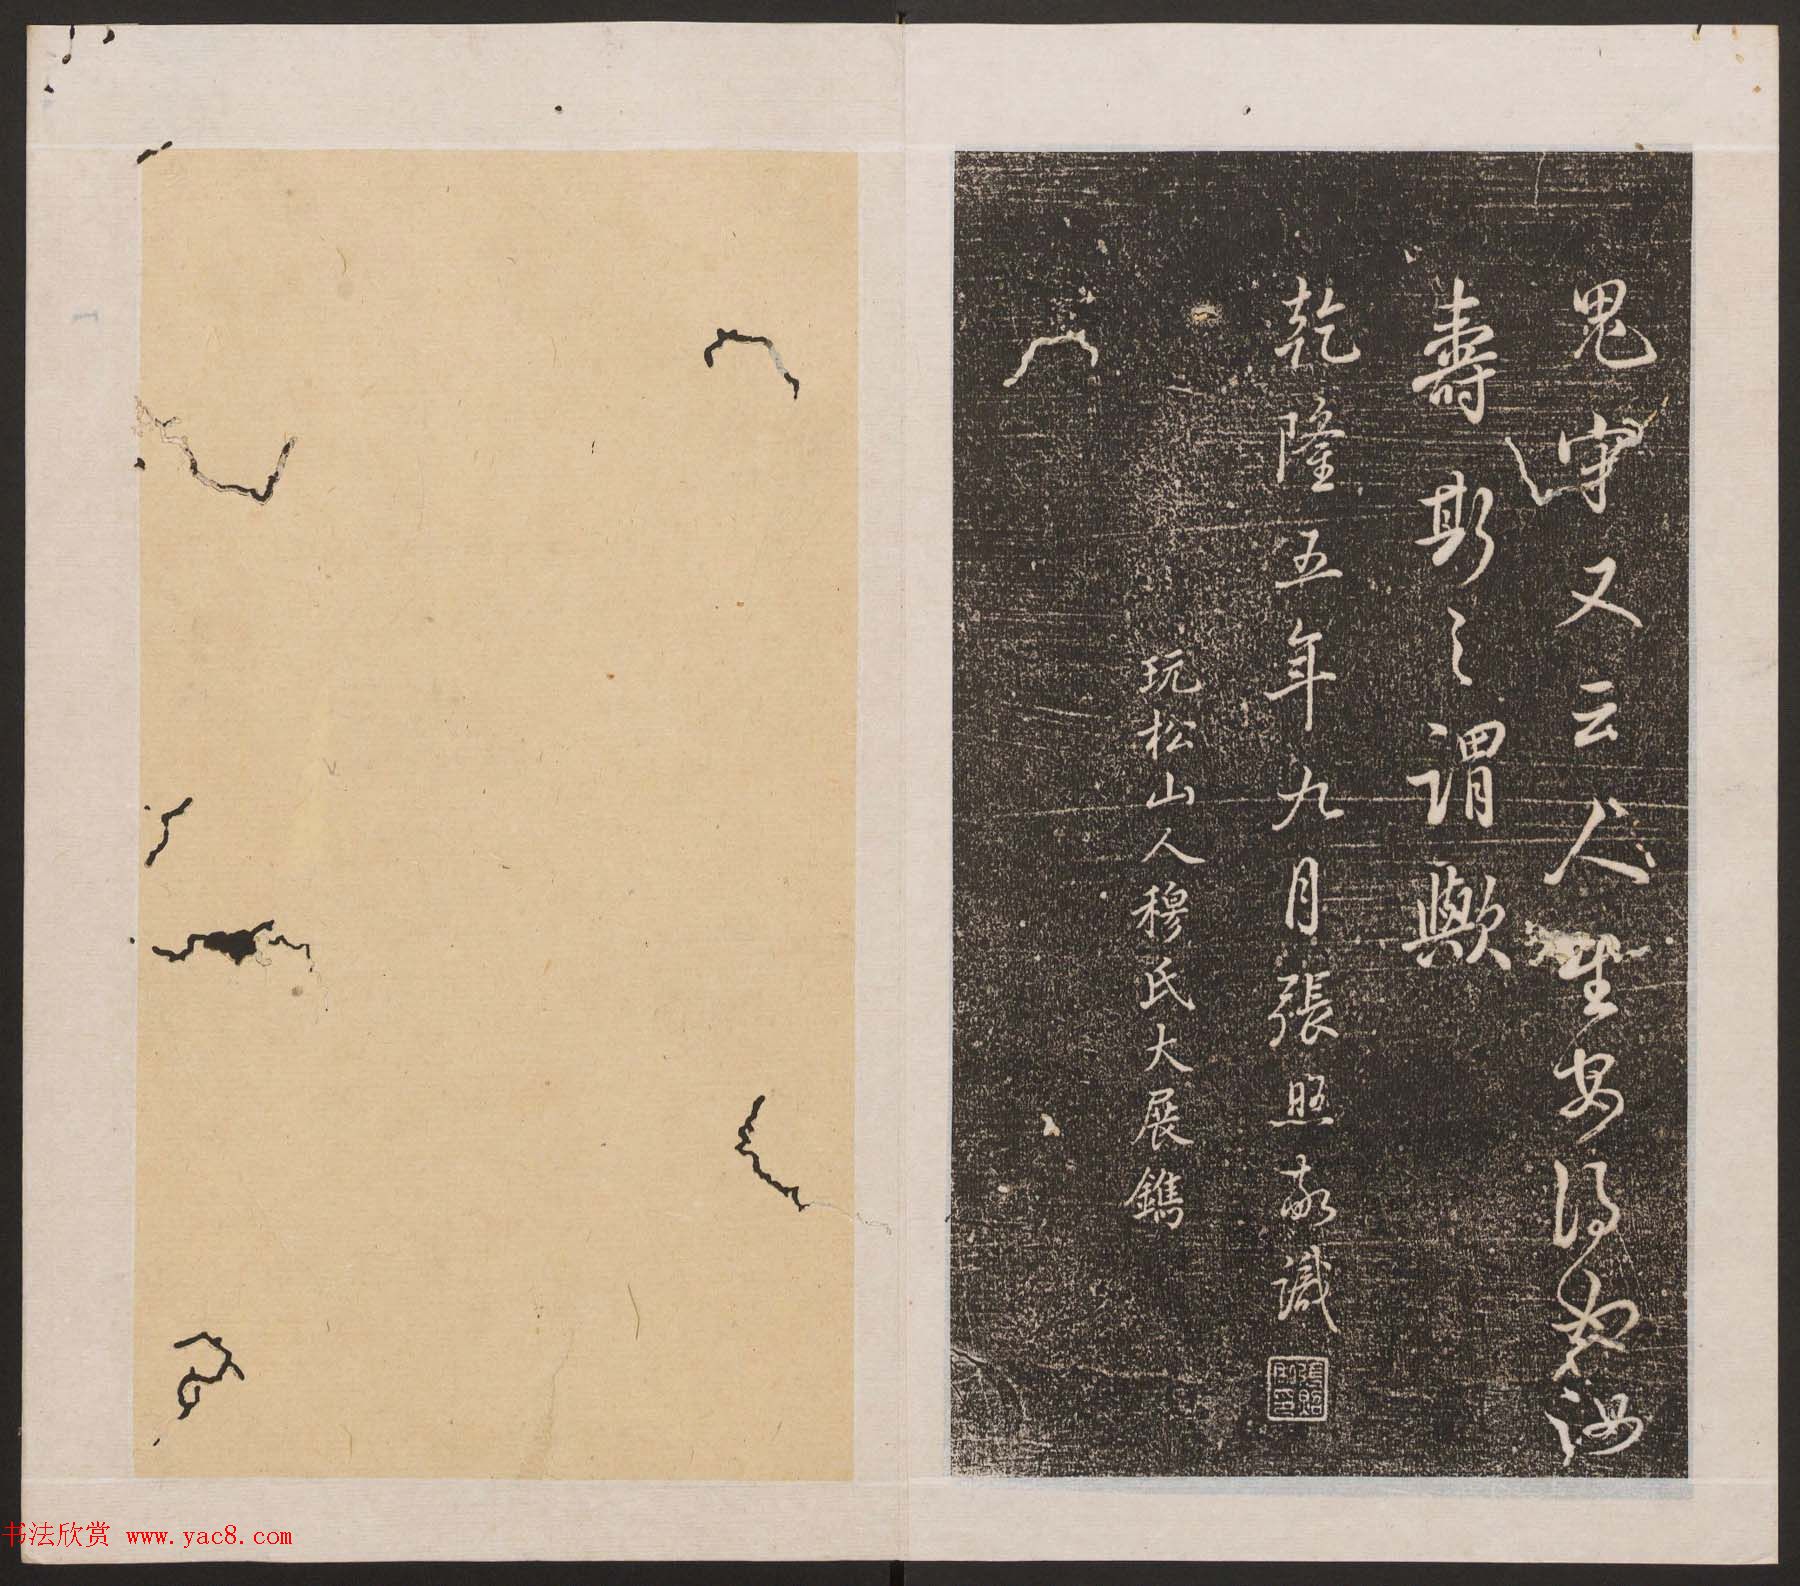 鬼守又云人生安得如汝
壽斯之謂歟
乾隆五年九月張照敬識
張照之印
玩松山人穆氏大展鐫
书法欣赏 www.yac8.com